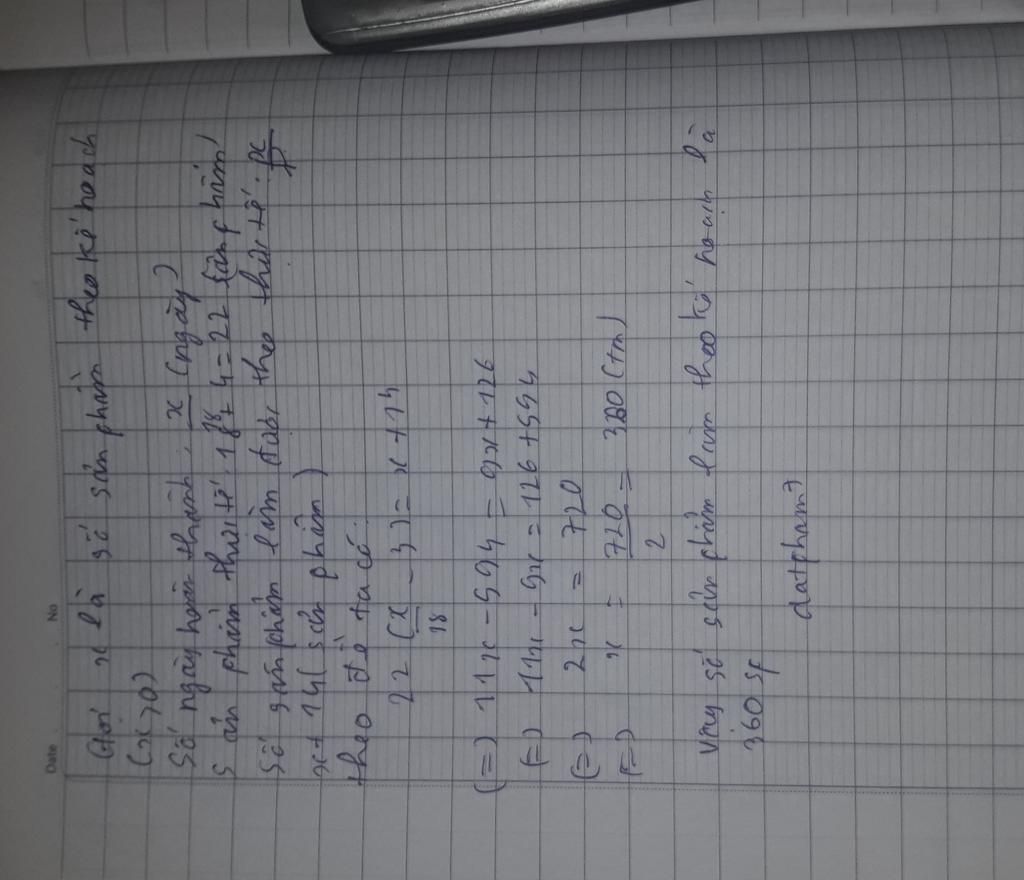 Date No
Gọi x là số sản phẩm theo kế hoạch
(x>0)
Số ngày hoàn thành: x/18 (ngày)
Sản phẩm thực tế: 18 + 4 = 22 (sản phẩm)
Số sản phẩm làm được theo thực tế:
x+14 (sản phẩm)
theo đề ta có:
22 (x/18 - 3) = x + 14
(=) 11x - 594 = 9x + 126
(=) 11x - 9x = 126 + 594
(=) 2x = 720
(=) x = 720/2 = 360 (tm)
Vậy số sản phẩm làm theo kế hoạch là
360 sp
datpham7